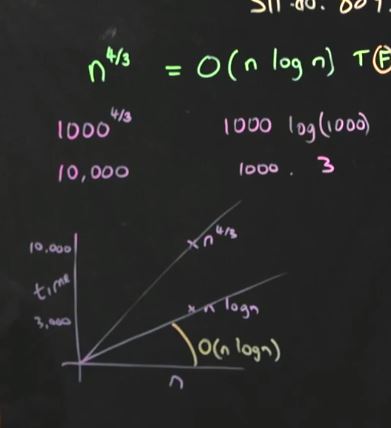 n^4/3 = O(n log n) T F
1000^4/3 1000 log(1000)
10,000 1000 . 3
10,000
n^4/3
time
3,000
n log n
O(n log n)
n